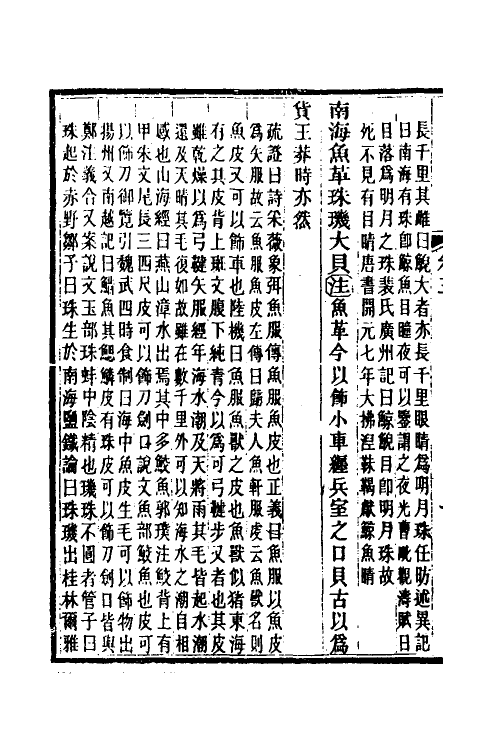 長千里其雌曰鯢大者亦長千里眼睛為明月珠任昉述異記
曰南海有珠即鯨魚目瞳夜可以鑒謂之夜光曹毗觀濤賦曰
目落為明月之珠裴氏廣州記曰鯨鯢目即明月珠故
死不見有目睛唐書開元七年大拂涅靺鞨獻鯨魚睛
南海魚革珠璣大貝注魚革今以飾小車纏兵室之口貝古以為
貨王莽時亦然
疏證曰詩采薇象弭魚服傳魚服魚皮也正義曰魚服以魚皮
為矢服故云魚服魚皮左傳曰歸夫人魚軒服虔云魚獸名則
魚皮又可以飾車也陸機曰魚服魚獸之皮也魚獸似猪東海
有之其皮背上斑文腹下純青今以為可弓鞬步叉者也其皮
雖乾燥以為弓鞬矢服經年海水潮及天將雨其毛皆起水潮
還及天晴其毛復如故雖在數千里外可以知海水之潮自相
感也山海經曰燕山漳水出焉其中多鮫魚郭璞注鮫背上有
甲朱文尾長三四尺皮可以飾刀劍口說文魚部鮫魚也皮可
以飾刀御覽引魏武四時食制曰海中魚皮生毛可以飾物出
揚州又南越記曰鯌魚其鰓鱗皮有珠皮可以飾刀劍口皆與
鄭注義合又案說文玉部珠蚌中陰精也璣珠不圜者管子曰
珠起於赤野鄒子曰珠生於南海鹽鐵論曰珠璣出桂林爾雅